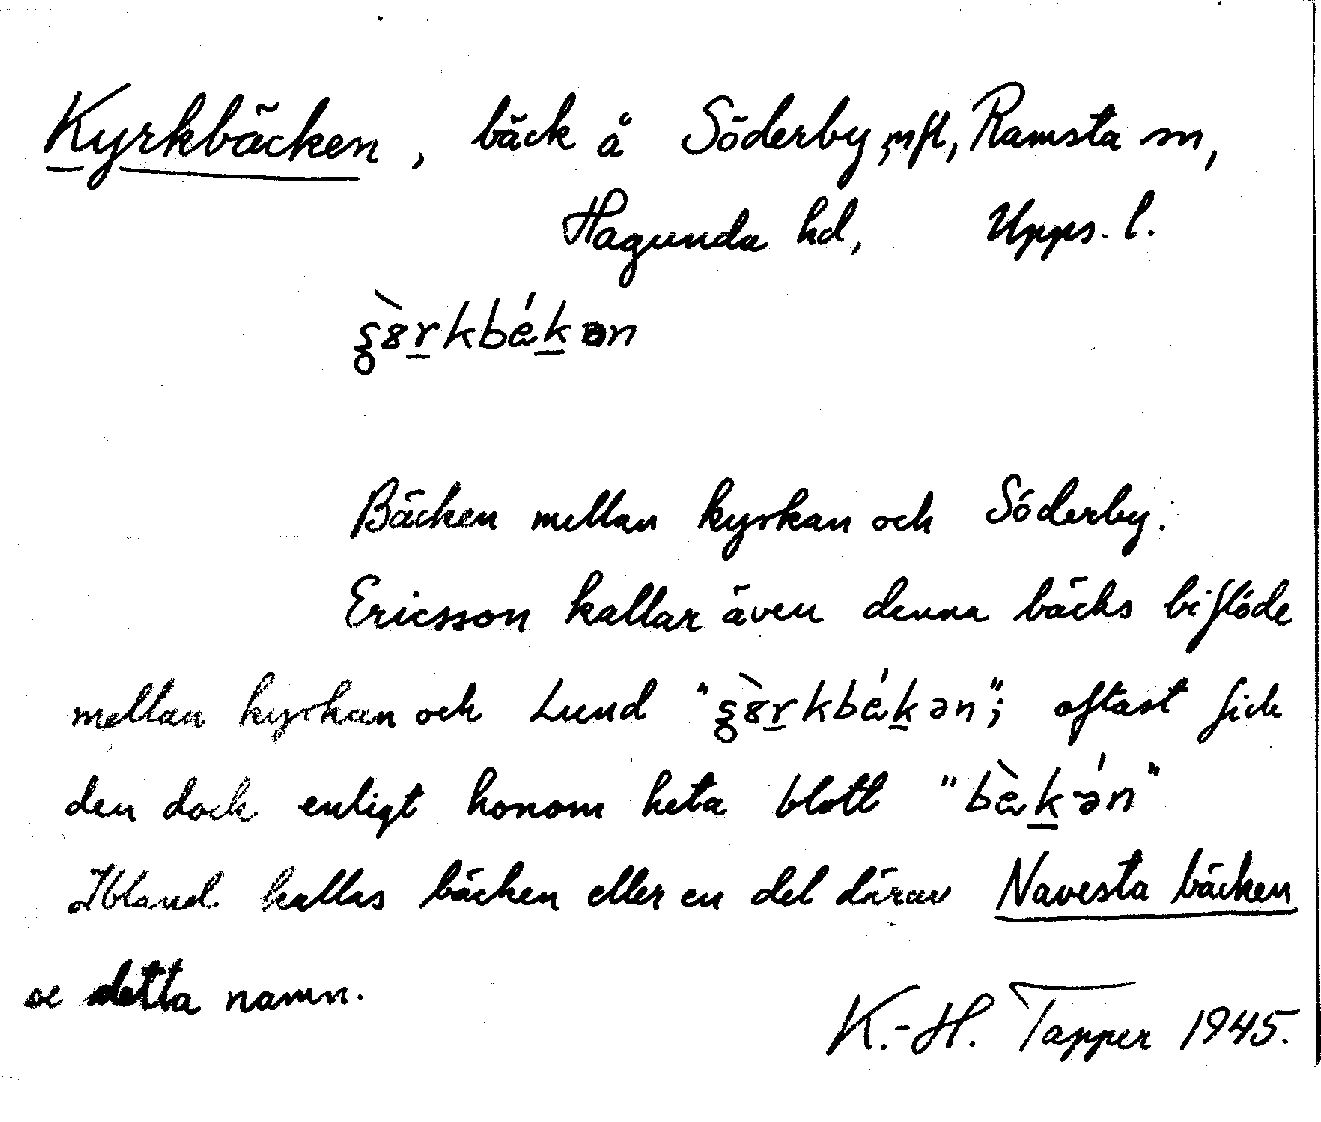 Kyrkbäcken, bäck å Söderby mfl, Ramsta sn,
Hagunda hd, Upps. l.
Bäcken mellan kyrkan och Söderby.
Ericsson kallar även denna bäcks biflöde
mellan kyrkan och Lund oftast fick
den dock enligt honom heta blott
Ibland kallas bäcken eller en del därav Navesta bäcken
se detta namn.
K.-H. Tapper 1945.